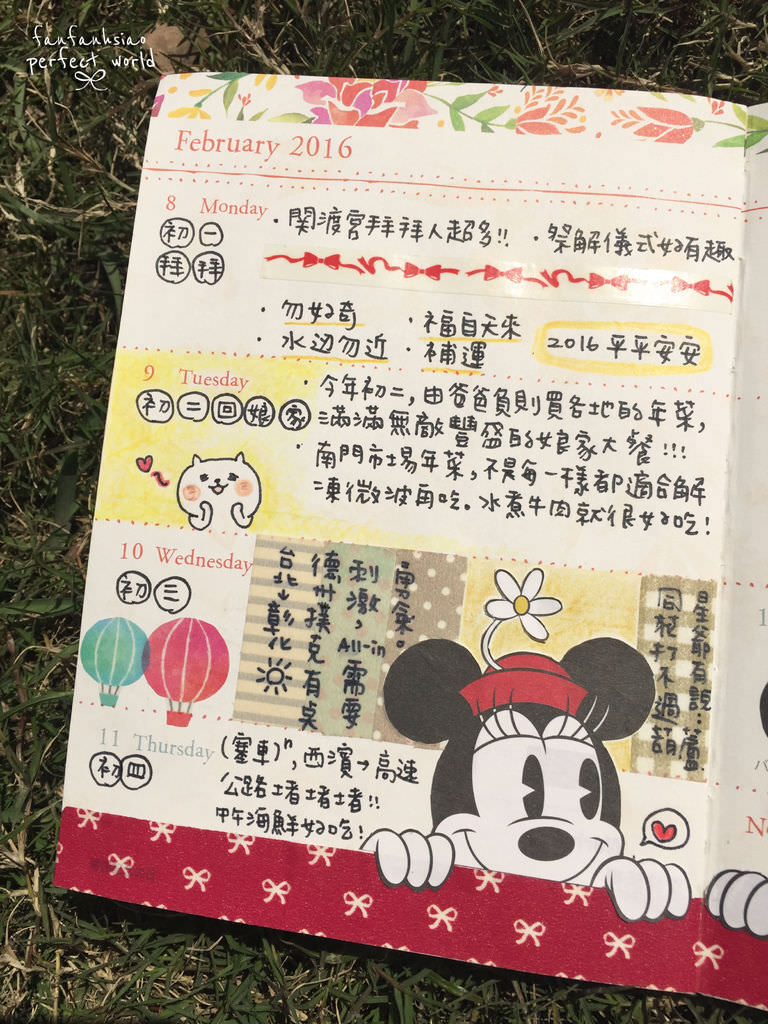 fanfanhsiao
perfect world
February 2016
8 Monday
初一
拜拜
·関渡宮拜拜人超多!! ·祭解儀式好有趣
·勿好奇 ·福自天來
·水边勿近 ·補運
2016平平安安
9 Tuesday
初二回娘家
·今年初二,由爸爸負則買各地的年菜,
滿滿無敵豐盛的娘家大餐!!!
·南門市場年菜,不是每一樣都適合解
凍微波再吃。水煮牛肉就很好吃!
10 Wednesday
初三
台北→彰化
德州撲克有夠
刺激,All-in需要
勇氣。
星爺有說:蘆
同就打不過葫
11 Thursday
初四
(塞車)ⁿ,西濱→高速
公路堵堵堵!!
中午海鮮好吃!